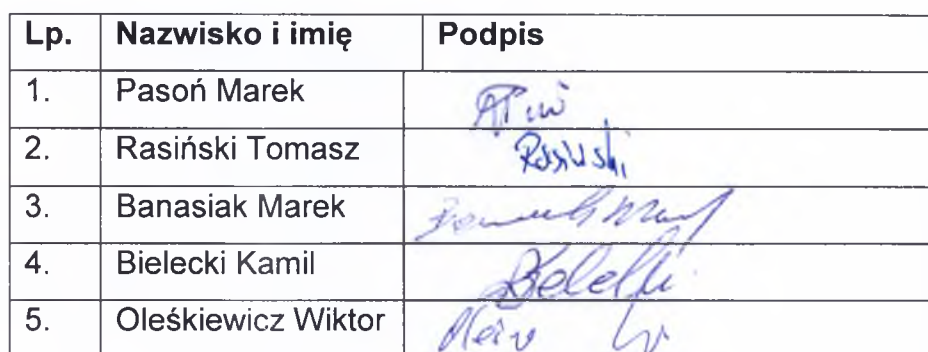 Lp. Nazwisko i imię Podpis
1. Pasoń Marek
2. Rasiński Tomasz Rasiński
3. Banasiak Marek
4. Bielecki Kamil
5. Oleśkiewicz Wiktor